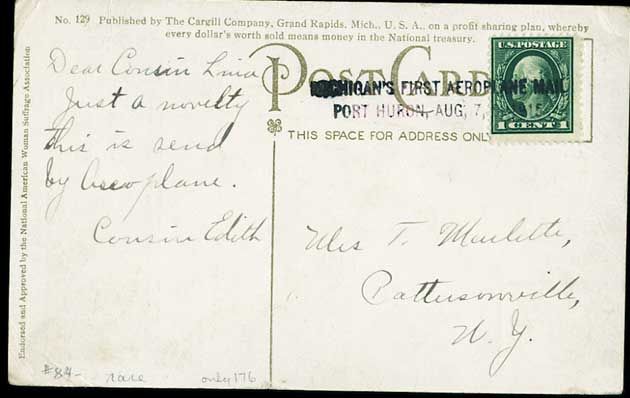 No. 129 Published by The Cargill Company, Grand Rapids, Mich., U. S. A., on a profit sharing plan, whereby
every dollar's worth sold means money in the National treasury.
Endorsed and Approved by the National American Woman Suffrage Association
POST CARD
U.S. POSTAGE
1 CENT 1
MICHIGAN'S FIRST AEROPLANE MAIL
PORT HURON, AUG, 7, 1915
THIS SPACE FOR ADDRESS ONLY
Dear Cousin Lina
Just a novelty
this is send
by Aeroplane.
Cousin Edith
T.
Pattersonville,
N. Y.
#84- rare only 176